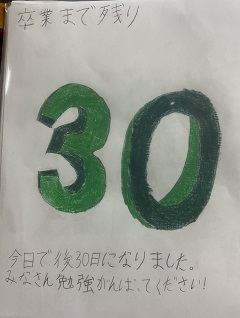 卒業まで残り
30
今日で後30日になりました。
みなさん勉強がんばってください!